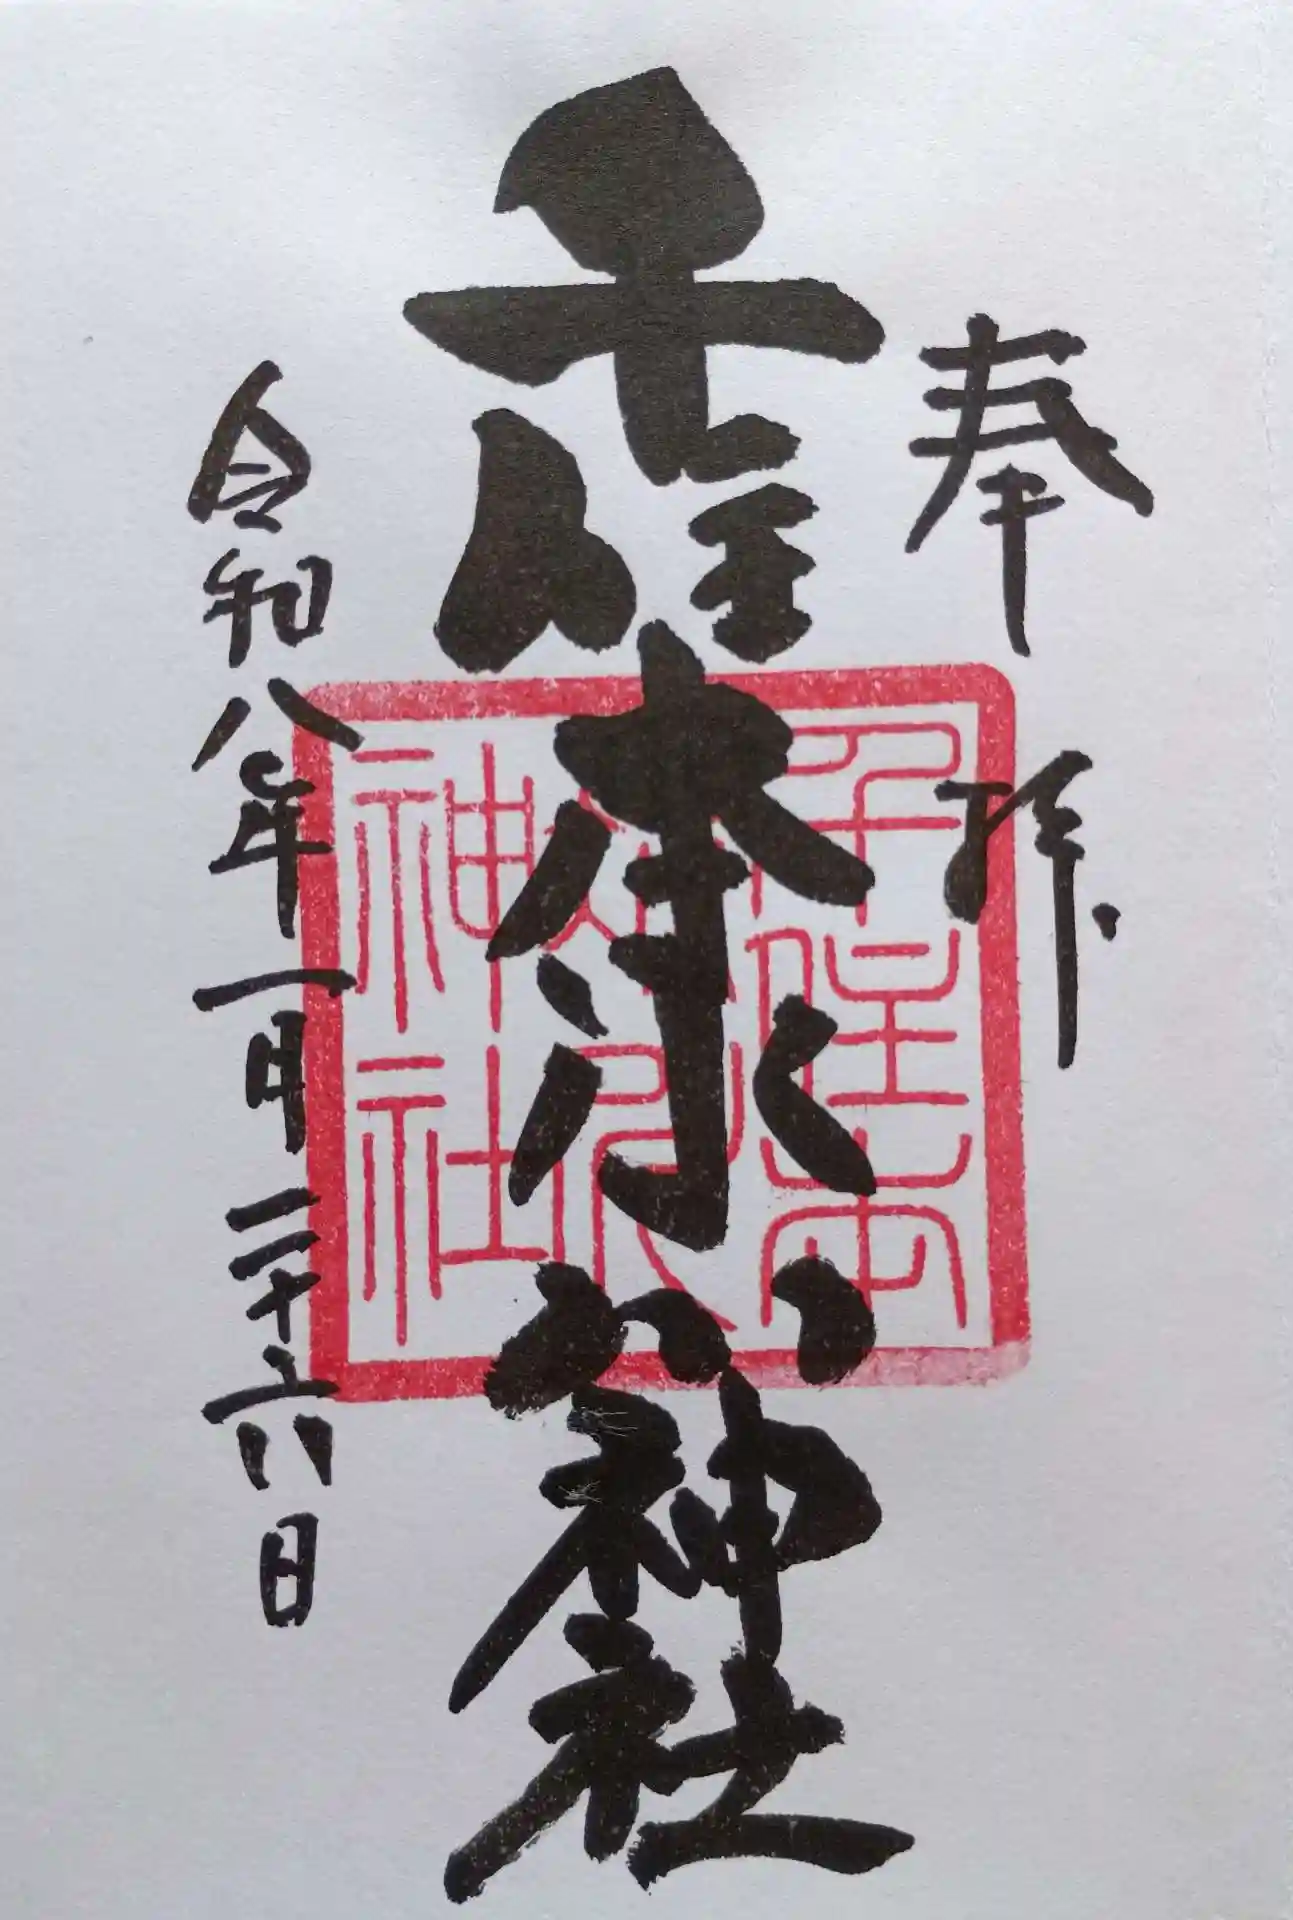 奉拝
千住本氷川神社
令和八年一月二十六日
千住本
氷川
神社